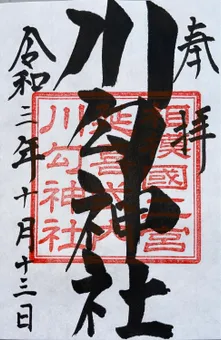 奉拝
川勾神社
相模國二宮
延喜式内
川勾神社
令和三年十月十三日